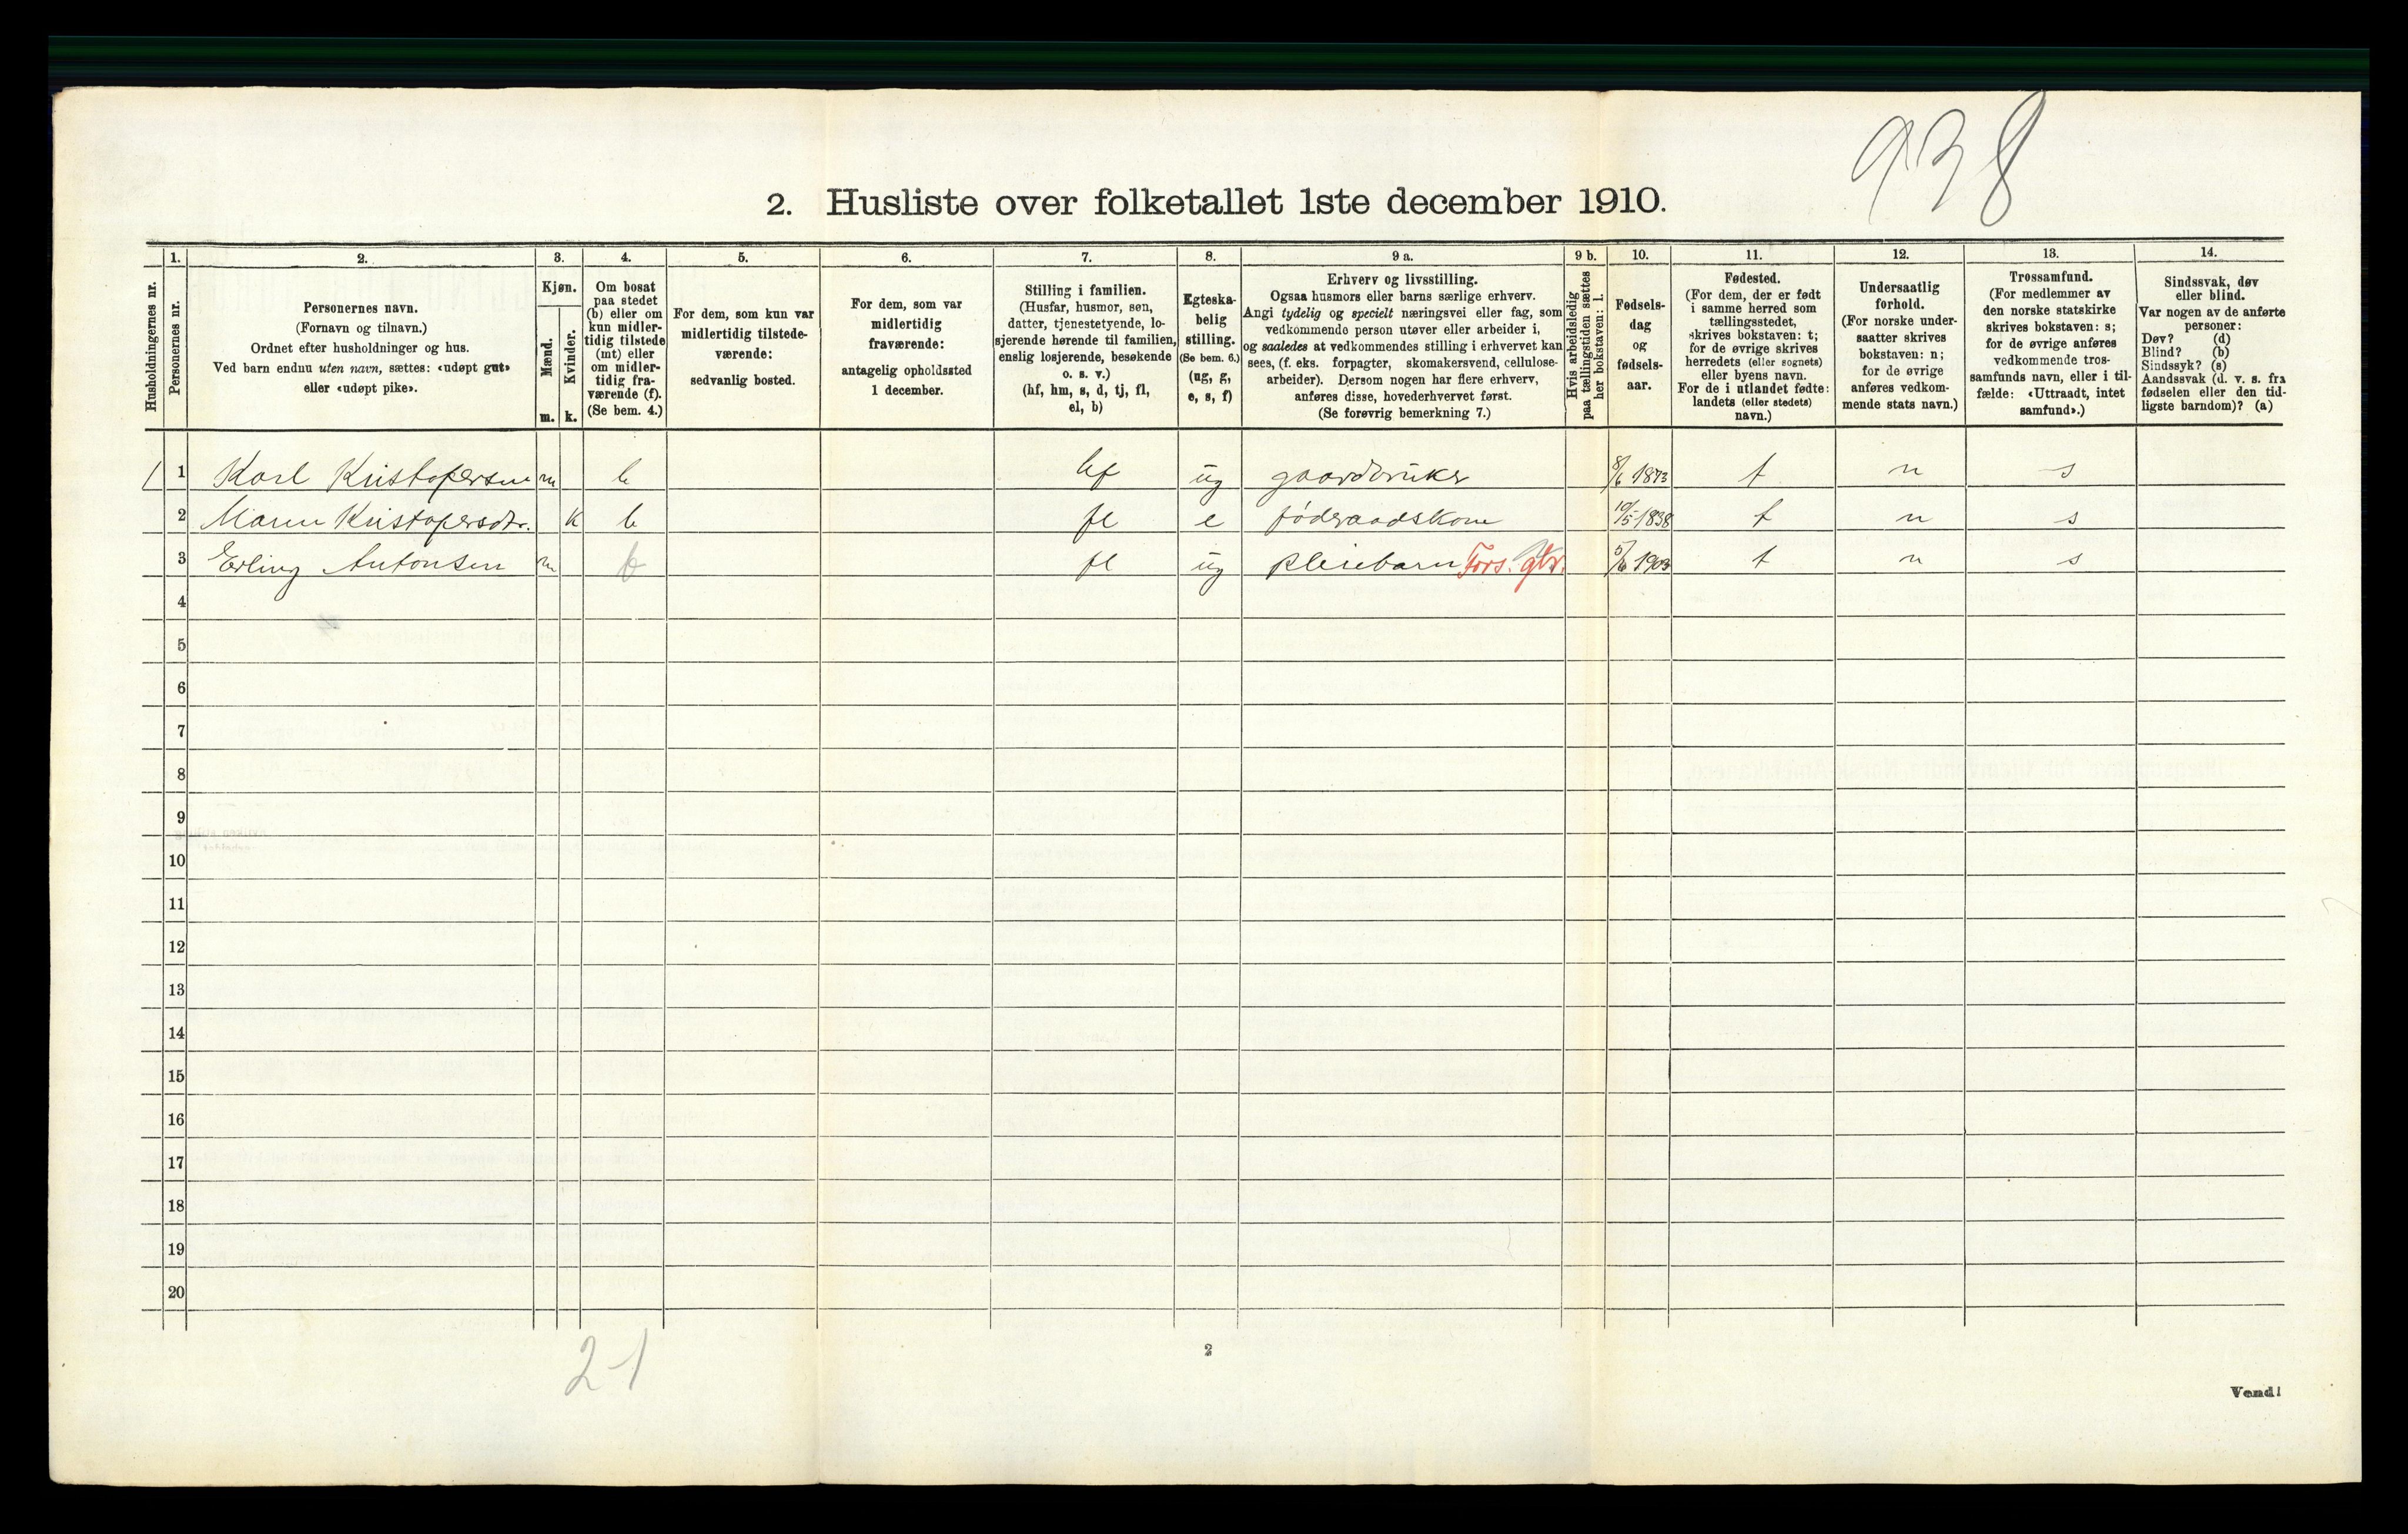 938
2. Husliste over folketallet 1ste december 1910.
Husholdningernes nr.
1. Personernes nr.
2. Personernes navn. (Fornavn og tilnavn.) Ordnet efter husholdninger og hus. Ved barn endnu uten navn, sættes: «udøpt gut» eller «udøpt pike».
3. Kjøn. Mænd. m. Kvinder. k.
4. Om bosat paa stedet (b) eller om kun midlertidig tilstede (mt) eller om midlertidig fraværende (f). (Se bem. 4.)
5. For dem, som kun var midlertidig tilstedeværende: sedvanlig bosted.
6. For dem, som var midlertidig fraværende: antagelig opholdssted 1 december.
7. Stilling i familien. (Husfar, husmor, søn, datter, tjenestetyende, losjerende hørende til familien, enslig losjerende, besøkende o. s. v.) (hf, hm, s, d, tj, fl, el, b)
8. Egteskabelig stilling. (Se bem. 6.) (ug, g, e, s, f)
9 a. Erhverv og livsstilling. Ogsaa husmors eller barns særlige erhverv. Angi tydelig og specielt næringsvei eller fag, som vedkommende person utøver eller arbeider i, og saaledes at vedkommendes stilling i erhvervet kan sees, (f. eks. forpagter, skomakersvend, cellulosearbeider). Dersom nogen har flere erhverv, anføres disse, hovederhvervet først. (Se forøvrig bemerkning 7.)
9 b. Hvis arbeidsledig paa tællingstiden sættes her bokstaven: l.
10. Fødselsdag og fødselsaar.
11. Fødested. (For dem, der er født i samme herred som tællingsstedet, skrives bokstaven: t; for de øvrige skrives herredets (eller sognets) eller byens navn. For de i utlandet fødte: landets (eller stedets) navn.)
12. Undersaatlig forhold. (For norske undersaatter skrives bokstaven: n; for de øvrige anføres vedkommende stats navn.)
13. Trossamfund. (For medlemmer av den norske statskirke skrives bokstaven: s; for de øvrige anføres vedkommende trossamfunds navn, eller i tilfælde: «Uttraadt, intet samfund».)
14. Sindssvak, døv eller blind. Var nogen av de anførte personer: Døv? (d) Blind? (b) Sindssyk? (s) Aandssvak (d. v. s. fra fødselen eller den tidligste barndom)? (a)
1 1 Karl Kristofersen m b hf ug gaardbruker 8/6 1873 t n s
2 Maren Kristofersdtr. K b fl e føderaadskone 10/5 1838 t n s
3 Erling Antonsen m b fl ug pleiebarn Fors. gbr. 5/6 1903 t n s
4
5
6
7
8
9
10
11
12
13
14
15
16
17
18
19
20
2-1
2
Vend!